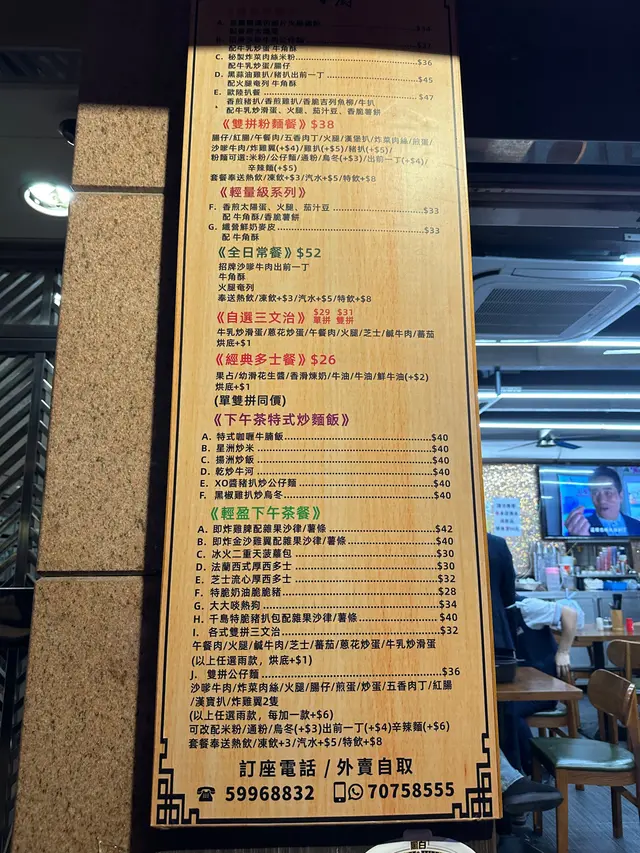 配牛乳炒蛋 牛角酥
C. 秘製炸菜肉絲米粉 $36
配牛乳炒蛋/腸仔
D. 黑蒜油雞扒/豬扒出前一丁 $45
配火腿奄列 牛角酥
E. 歐陸扒餐 $47
香煎豬扒/香煎雞扒/香脆吉列魚柳/牛扒
配牛乳炒滑蛋、火腿、茄汁豆、香脆薯餅
《雙拼粉麵餐》$38
腸仔/紅腸/午餐肉/五香肉丁/火腿/漢堡扒/炸菜肉絲/煎蛋/
沙嗲牛肉/炸雞翼(+$4)/雞扒(+$5)/豬扒(+$5)/
粉麵可選:米粉/公仔麵/通粉/烏冬(+$3)/出前一丁(+$4)/
辛辣麵(+$5)
套餐奉送熱飲/凍飲+$3/汽水+$5/特飲+$8
《輕量級系列》
F. 香煎太陽蛋、火腿、茄汁豆 $33
配 牛角酥/香脆薯餅
G. 纖營鮮奶麥皮 $33
配 牛角酥
《全日常餐》$52
招牌沙嗲牛肉出前一丁
牛角酥
火腿奄列
奉送熱飲/凍飲+$3/汽水+$5/特飲+$8
《自選三文治》 $29 單拼 $31 雙拼
牛乳炒滑蛋/蔥花炒蛋/午餐肉/火腿/芝士/鹹牛肉/蕃茄
烘底+$1
《經典多士餐》$26
果占/幼滑花生醬/香滑煉奶/牛油/牛油/鮮牛油(+$2)
烘底+$1
(單雙拼同價)
《下午茶特式炒麵飯》
A. 特式咖喱牛腩飯 $40
B. 星洲炒米 $40
C. 揚洲炒飯 $40
D. 乾炒牛河 $40
E. XO醬豬扒炒公仔麵 $40
F. 黑椒雞扒炒烏冬 $40
《輕盈下午茶餐》
A. 即炸雞脾配雜果沙律/薯條 $42
B. 即炸金沙雞翼配雜果沙律/薯條 $40
C. 冰火二重天菠蘿包 $30
D. 法蘭西式厚西多士 $30
E. 芝士流心厚西多士 $32
F. 特脆奶油脆脆豬 $28
G. 大大啖熱狗 $34
H. 千島特脆豬扒包配雜果沙律/薯條 $40
I. 各式雙拼三文治 $32
午餐肉/火腿/鹹牛肉/芝士/蕃茄/蔥花炒蛋/牛乳炒滑蛋
(以上任選兩款，烘底+$1)
J. 雙拼公仔麵 $36
沙嗲牛肉/炸菜肉絲/火腿/腸仔/煎蛋/炒蛋/五香肉丁/紅腸
/漢寶扒/炸雞翼2隻
(以上任選兩款，每加一款+$6)
可改配米粉/通粉/烏冬(+$3)出前一丁(+$4)辛辣麵(+$6)
套餐奉送熱飲/凍飲+3/汽水+$5/特飲+$8
訂座電話 / 外賣自取
59968832 70758555